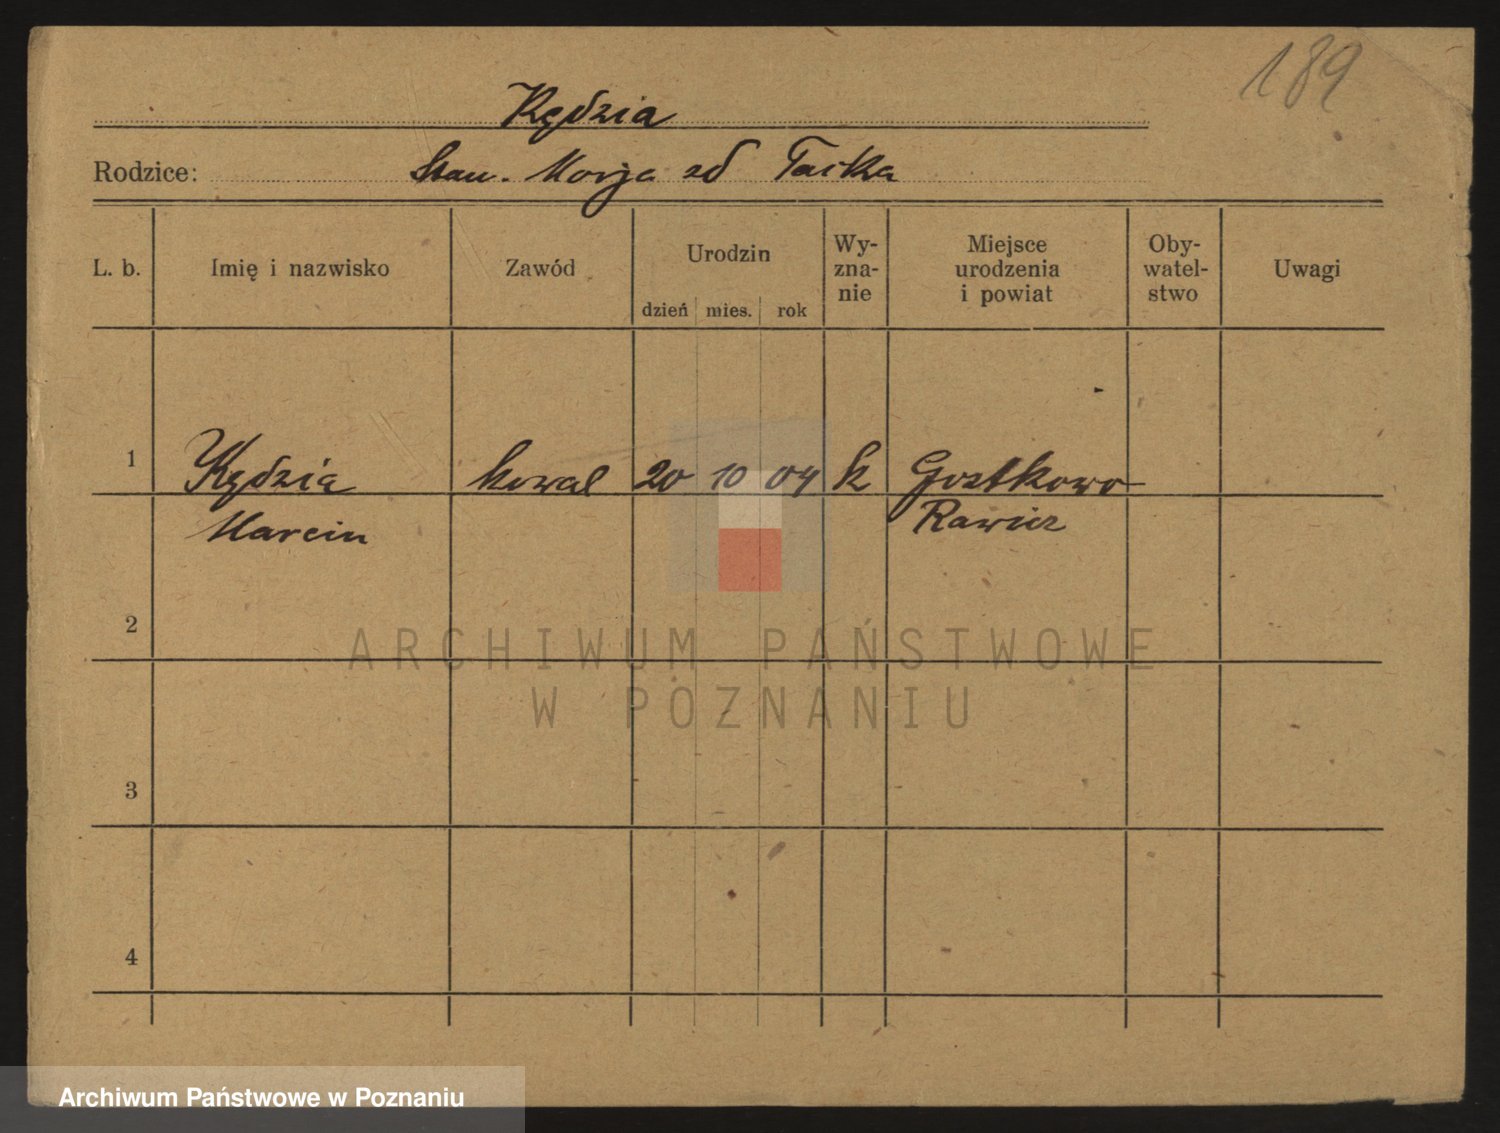 189
Kędzia
Rodzice: Stan. Marja zd
L. b. Imię i nazwisko Zawód Urodzin Wy-zna-nie Miejsce urodzenia i powiat Oby-watel-stwo Uwagi
dzień mies. rok
1 Kędzia kowal 20 10 04 k Gostkowo
Marcin Rawicz
2
ARCHIWUM PAŃSTWOWE
W POZNANIU
3
4
Archiwum Państwowe w Poznaniu